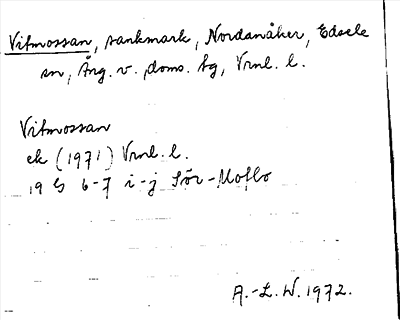 Vitmossan, sankmark, Nordanåker, Edsele
sn, Ång. v. doms. hg, Vrnl. l.
Vitmossan
ek (1971) Vrnl. l.
19 G 6-7 i-j Sör-Moflo
A.-L. W. 1972.